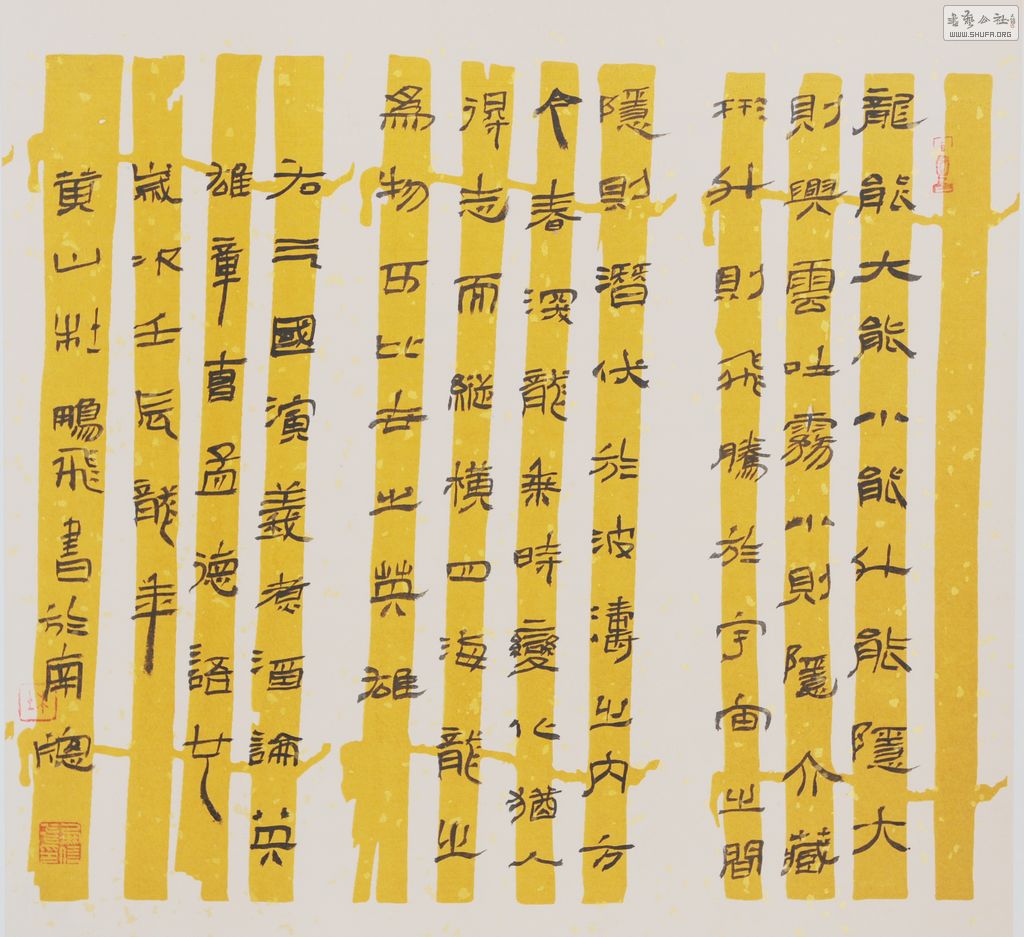 龍能大能小能升能隱大
則興雲吐霧小則隱介藏
形升則飛騰於宇宙之間
隱則潛伏於波濤之內方
今春深龍乘時變化猶人
得志而縱橫四海龍之
爲物可比世之英雄
右三國演義煮酒論英
雄章曹孟德語也
歲次壬辰龍年
黄山杜鵬飛書於南牕
書藝公社
WWW.SHUFA.ORG